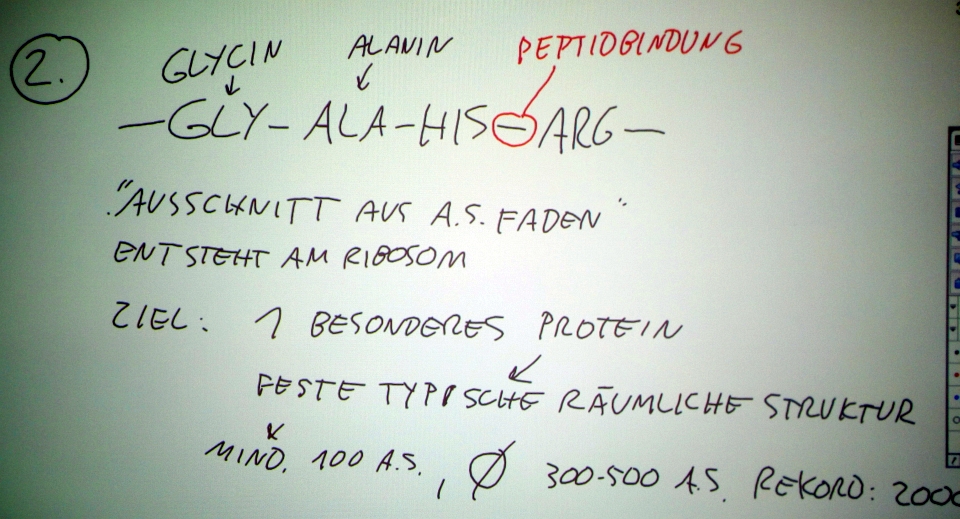 2. GLYCIN ALANIN PEPTIDBINDUNG
—GLY–ALA–HIS–ARG—
"AUSSCHNITT AUS A.S. FADEN"
ENTSTEHT AM RIBOSOM
ZIEL: 1 BESONDERES PROTEIN
FESTE TYPISCHE RÄUMLICHE STRUKTUR
MIND. 100 A.S., Ø 300-500 A.S. REKORD: 2000